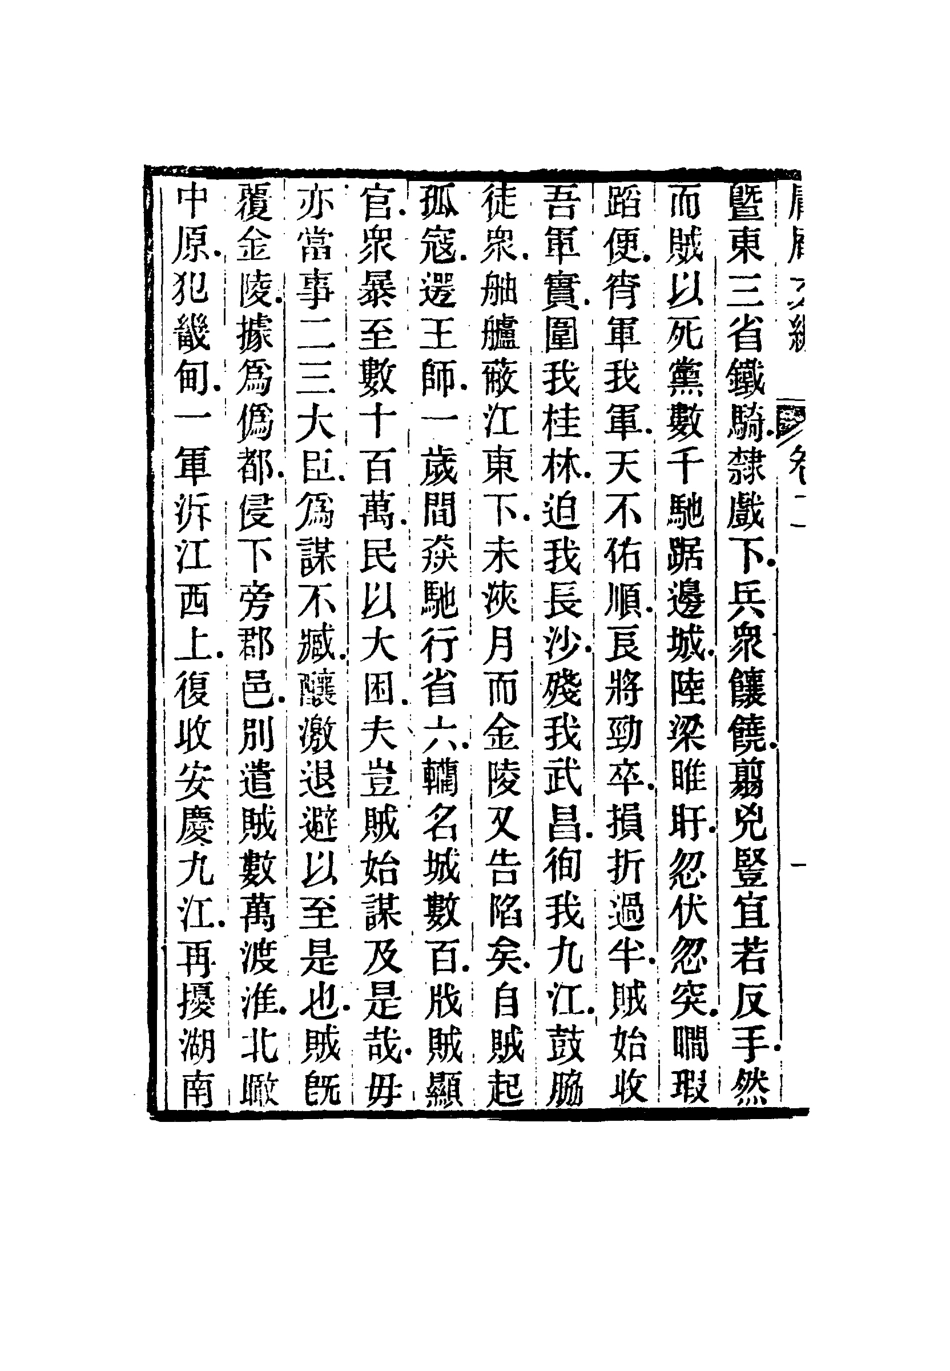 暨東三省鐵騎隸戲下兵衆饟饒翦兇豎宜若反手然
而賊以死黨數千馳踞邊城陸梁睢盱忽伏忽突瞷瑕
蹈便宵軍我軍天不佑順良將勁卒損折過半賊始收
吾軍實圍我桂林迫我長沙殘我武昌徇我九江鼓脇
徒衆舳艫蔽江東下未浹月而金陵又告陷矣自賊起
孤寇遝王師一歲間猋馳行省六轥名城數百戕賊顯
官衆暴至數十百萬民以大困夫豈賊始謀及是哉毋
亦當事二三大臣爲謀不臧釀激退避以至是也賊旣
覆金陵據爲僞都侵下旁郡邑別遣賊數萬渡淮北瞰
中原犯畿甸一軍泝江西上復收安慶九江再擾湖南